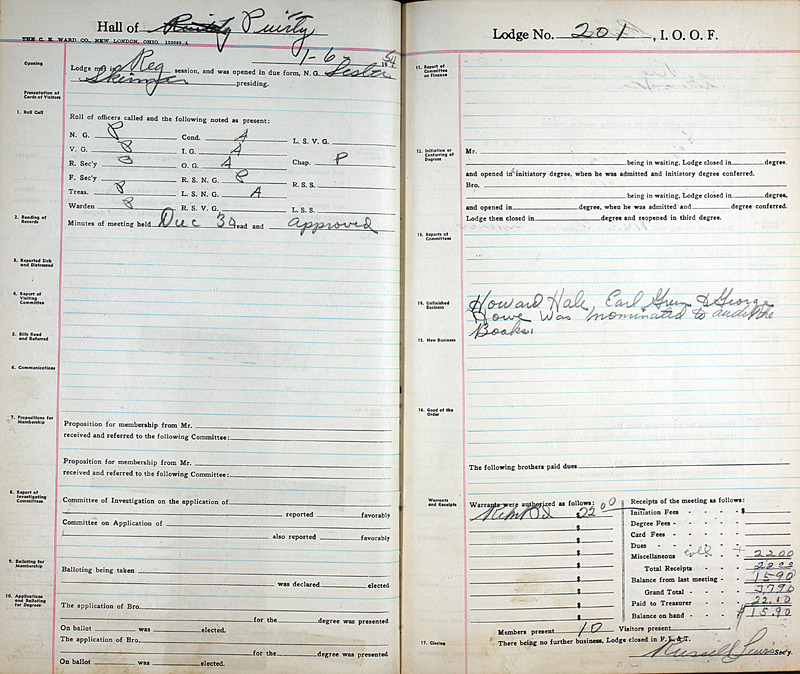 Hall of Purity
THE C. E. WARD CO., NEW LONDON, OHIO
Opening
Lodge met in Reg session, and was opened in due form, N. G. Lester
1-6 54
Skinner presiding.
Presentation of Cards of Visitors
1. Roll Call
Roll of officers called and the following noted as present:
N. G. P Cond. A L. S. V. G.
V. G. P I. G. A
R. Sec'y P O. G. A Chap. P
F. Sec'y R. S. N. G. P R. S. S.
Treas. P L. S. N. G. A
Warden P R. S. V. G. L. S. S.
2. Reading of Records
Minutes of meeting held Dec 30 read and approved
3. Reported Sick and Distressed
4. Report of Visiting Committee
5. Bills Read and Referred
6. Communications
7. Propositions for Membership
Proposition for membership from Mr.
received and referred to the following Committee:
Proposition for membership from Mr.
received and referred to the following Committee:
8. Report of Investigating Committees
Committee of Investigation on the application of
reported favorably
Committee on Application of
also reported favorably
9. Balloting for Membership
Balloting being taken
was declared elected
10. Applications and Balloting for Degrees
The application of Bro.
for the degree was presented
On ballot was elected.
The application of Bro.
for the degree was presented
On ballot was elected.
Lodge No. 201, I. O. O. F.
11. Report of Committee on Finance
12. Initiation or Conferring of Degrees
Mr.
being in waiting, Lodge closed in degree,
and opened in initiatory degree, when he was admitted and initiatory degree conferred.
Bro.
being in waiting, Lodge closed in degree,
and opened in degree, when he was admitted and degree conferred.
Lodge then closed in degree and reopened in third degree.
13. Reports of Committees
14. Unfinished Business
Howard Hale Earl Green & George
Howe Was nominated to audit the
Books.
15. New Business
16. Good of the Order
The following brothers paid dues
Warrants and Receipts
Warrants were authorized as follows:
$ 22.00
$
$
$
$
$
$
$
$
Receipts of the meeting as follows:
Initiation Fees $
Degree Fees
Card Fees
Dues
Miscellaneous 22 00
Total Receipts 22 00
Balance from last meeting 15 90
Grand Total 37 90
Paid to Treasurer 22.00
Balance on hand $ 15.90
Members present 10 Visitors present
17. Closing
There being no further business, Lodge closed in F. L. & T.
Russell Lewis Sec'y.